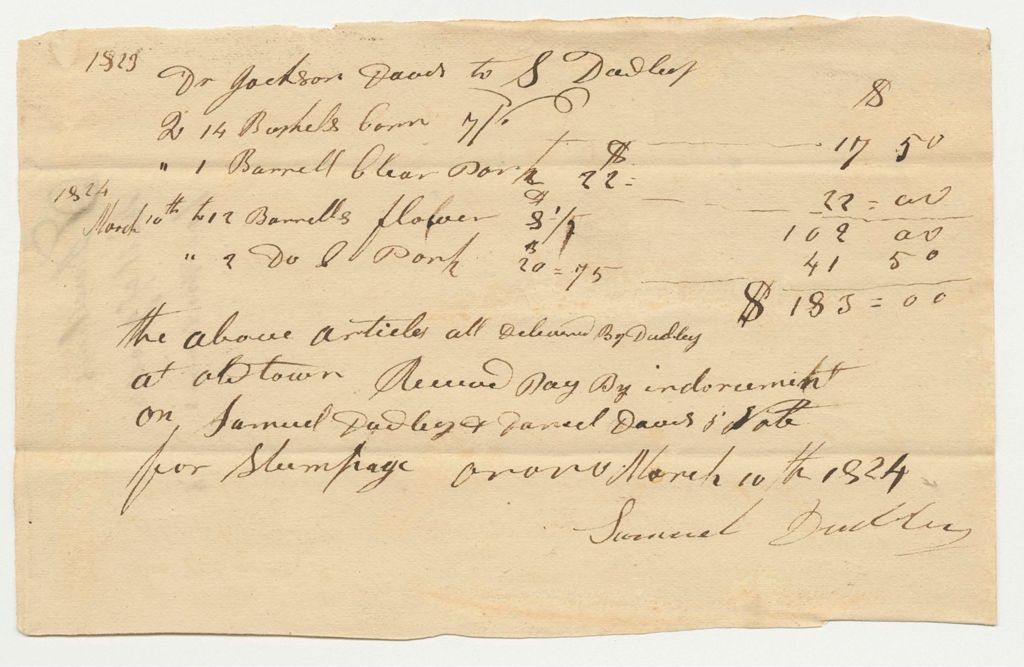 1823
Dr Jackson Davis to S Dudley
$
2 14 Bushels Corn 7/6 17 50
" 1 Barrell Clear Pork $ 22= 22 = 00
1824
March 10th to 12 Barrells flower $ 8 1/2 102 00
" 2 Do Pork $ 20=75 41 50
$ 183 = 00
the above articles all delivered By Dudley
at oldtown Received Pay By indorcement
on Samuel Dudley & Daniel Davis's Note
for Stumpage orono March 10th 1824
Samuel Dudley